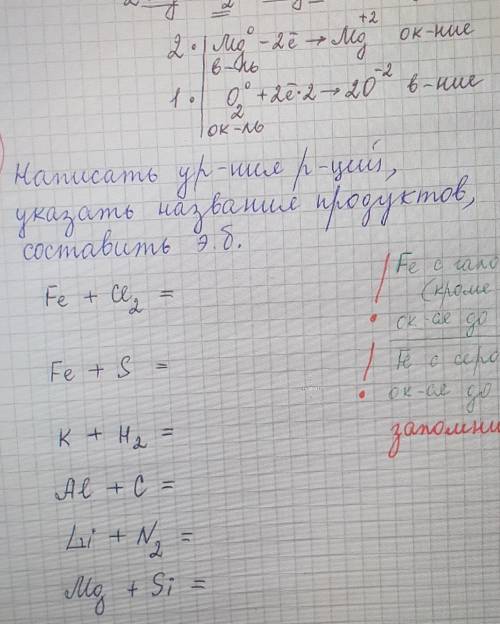 2. Mg⁰ - 2ē → Mg⁺² ок-ние
в-ль
1. O₂⁰ + 2ē·2 → 2O⁻² в-ние
ок-ль
Написать ур-ния р-ций,
указать названия продуктов,
составить э.б.
Fe + Cl₂ =
Fe + S =
K + H₂ =
Al + C =
Li + N₂ =
Mg + Si =
! Fe с гало
(кроме
ок-ся до
! Fe с серо
ок-ся до
запомни